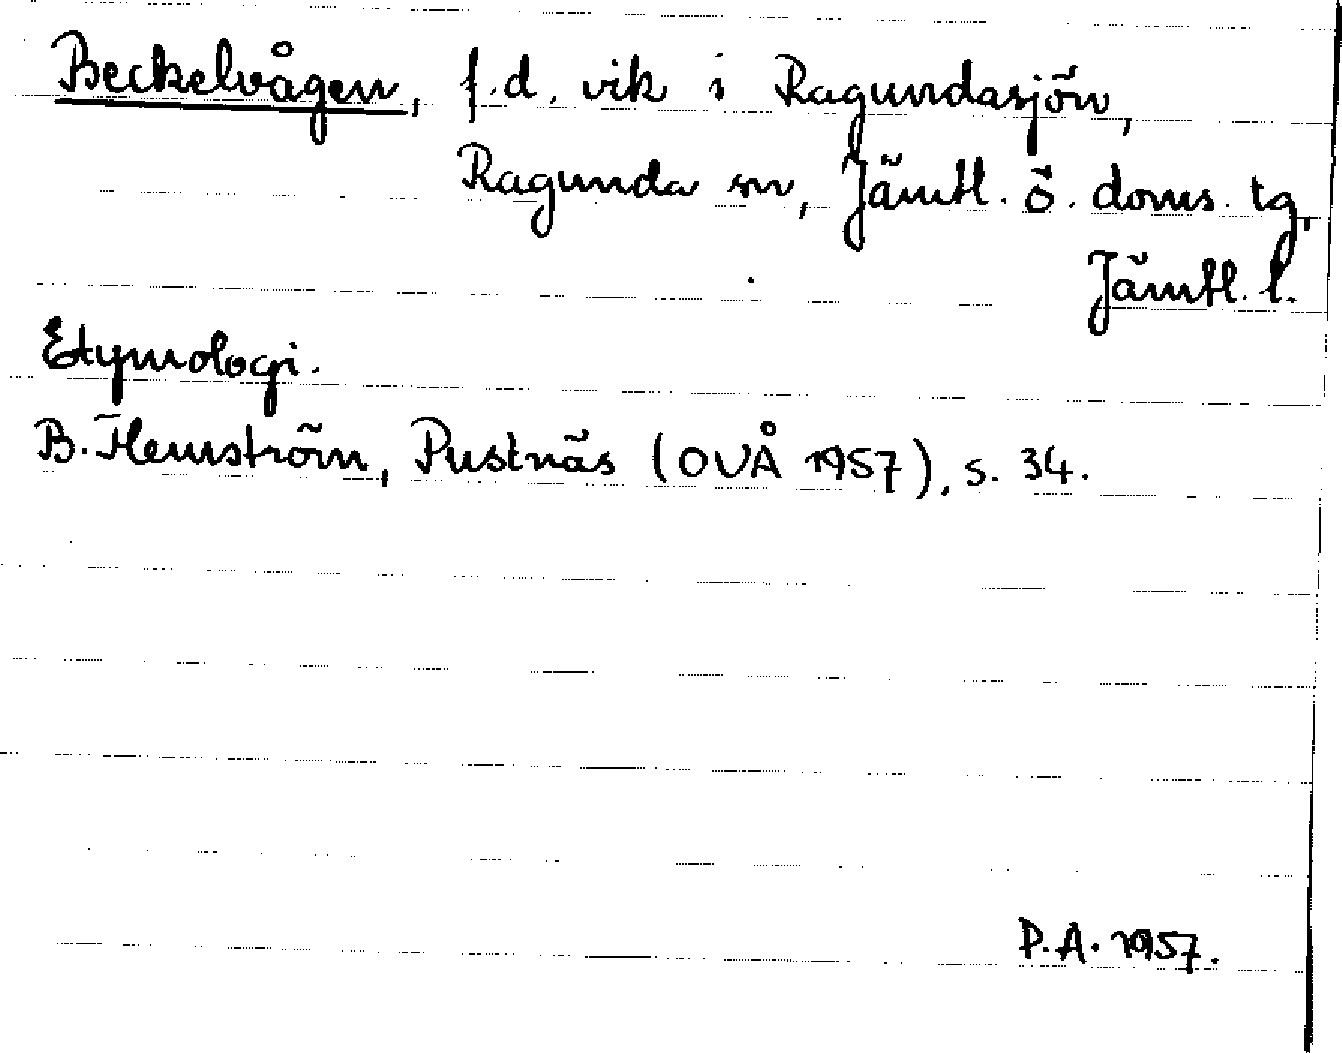 Beckelvågen, f.d. vik i Ragundasjön,
Ragunda sn, Jämtl. ö. doms. tg,
Jämtl. l.
Etymologi.
B. Flemström, Pustnäs (OUÅ 1957), s. 34.
P.A. 1957.